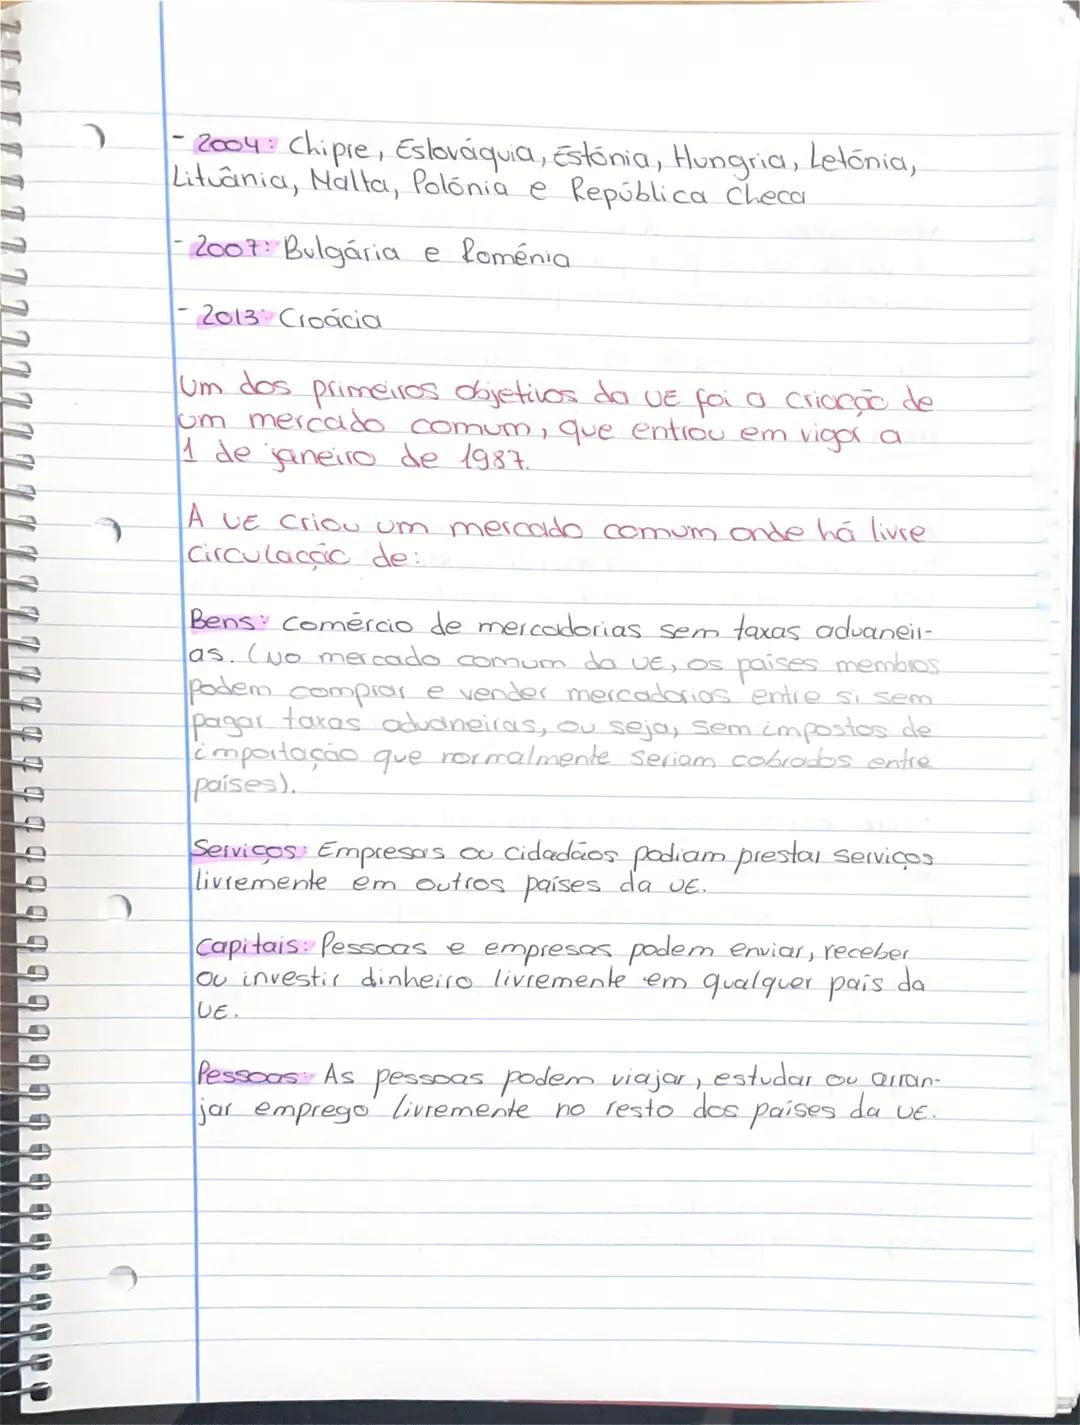 - 2004: Chipre, Eslováquia, Estónia, Hungria, Letónia,
Lituânia, Malta, Polónia e República Checa
- 2007: Bulgária e Roménia
- 2013: Croácia
Um dos primeiros objetivos da UE foi a criação de
um mercado comum, que entrou em vigor a
1 de janeiro de 1987.
A UE criou um mercado comum onde há livre
circulação de:
Bens: comércio de mercadorias sem taxas aduaneir-
as. (No mercado comum da UE, os países membros
podem comprar e vender mercadorias entre si sem
pagar taxas aduaneiras, ou seja, sem impostos de
importação que normalmente seriam cobrados entre
países).
Serviços: Empresas ou cidadãos podiam prestar serviços
livremente em outros países da UE.
Capitais: Pessoas e empresas podem enviar, receber
ou investir dinheiro livremente em qualquer país da
UE.
Pessoas: As pessoas podem viajar, estudar ou arran-
jar emprego livremente no resto dos países da UE.